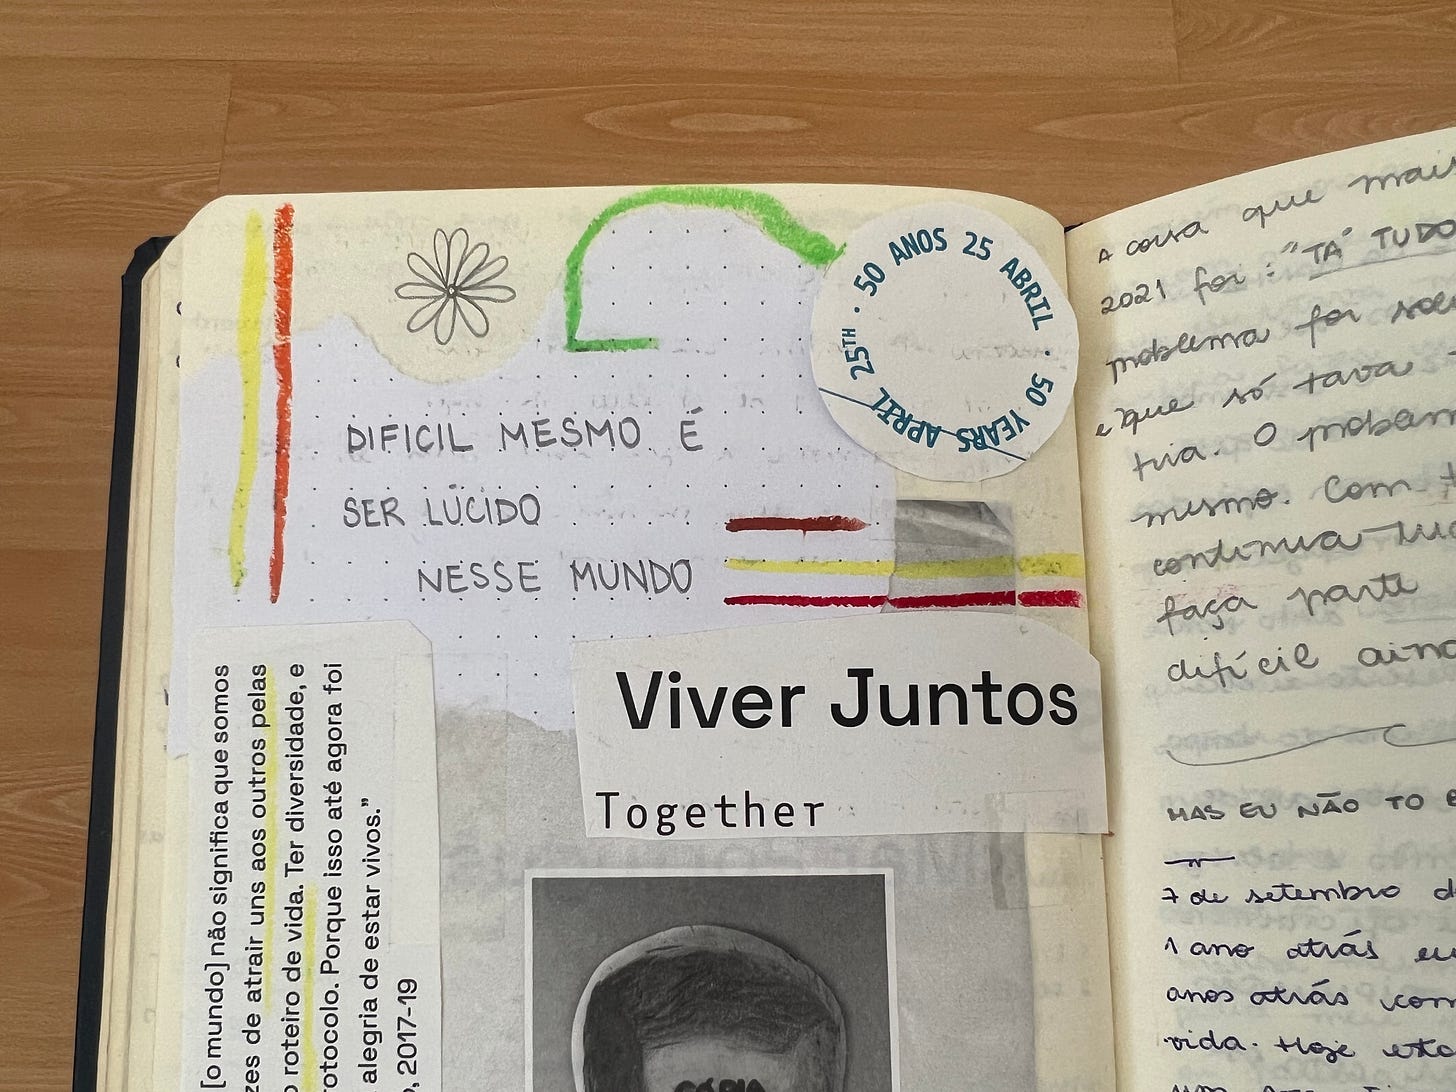 50 ANOS 25 ABRIL · 50 YEARS APRIL 25TH ·
DIFICIL MESMO É
SER LÚCIDO
NESSE MUNDO
Viver Juntos
Together
[o mundo] não significa que somos
zes de atrair uns aos outros pelas
o roteiro de vida. Ter diversidade, e
rotocolo. Porque isso até agora foi
alegria de estar vivos.”
, 2017-19
A coisa que mais
2021 foi: "TÁ TUDO
problema foi
e que só tava
tria. O problem
mesmo. Com
continua
faça parte
difícil ain
MAS EU NÃO TO
7 de setembro d
1 ano atrás eu
anos atrás com
vida. Hoje esto